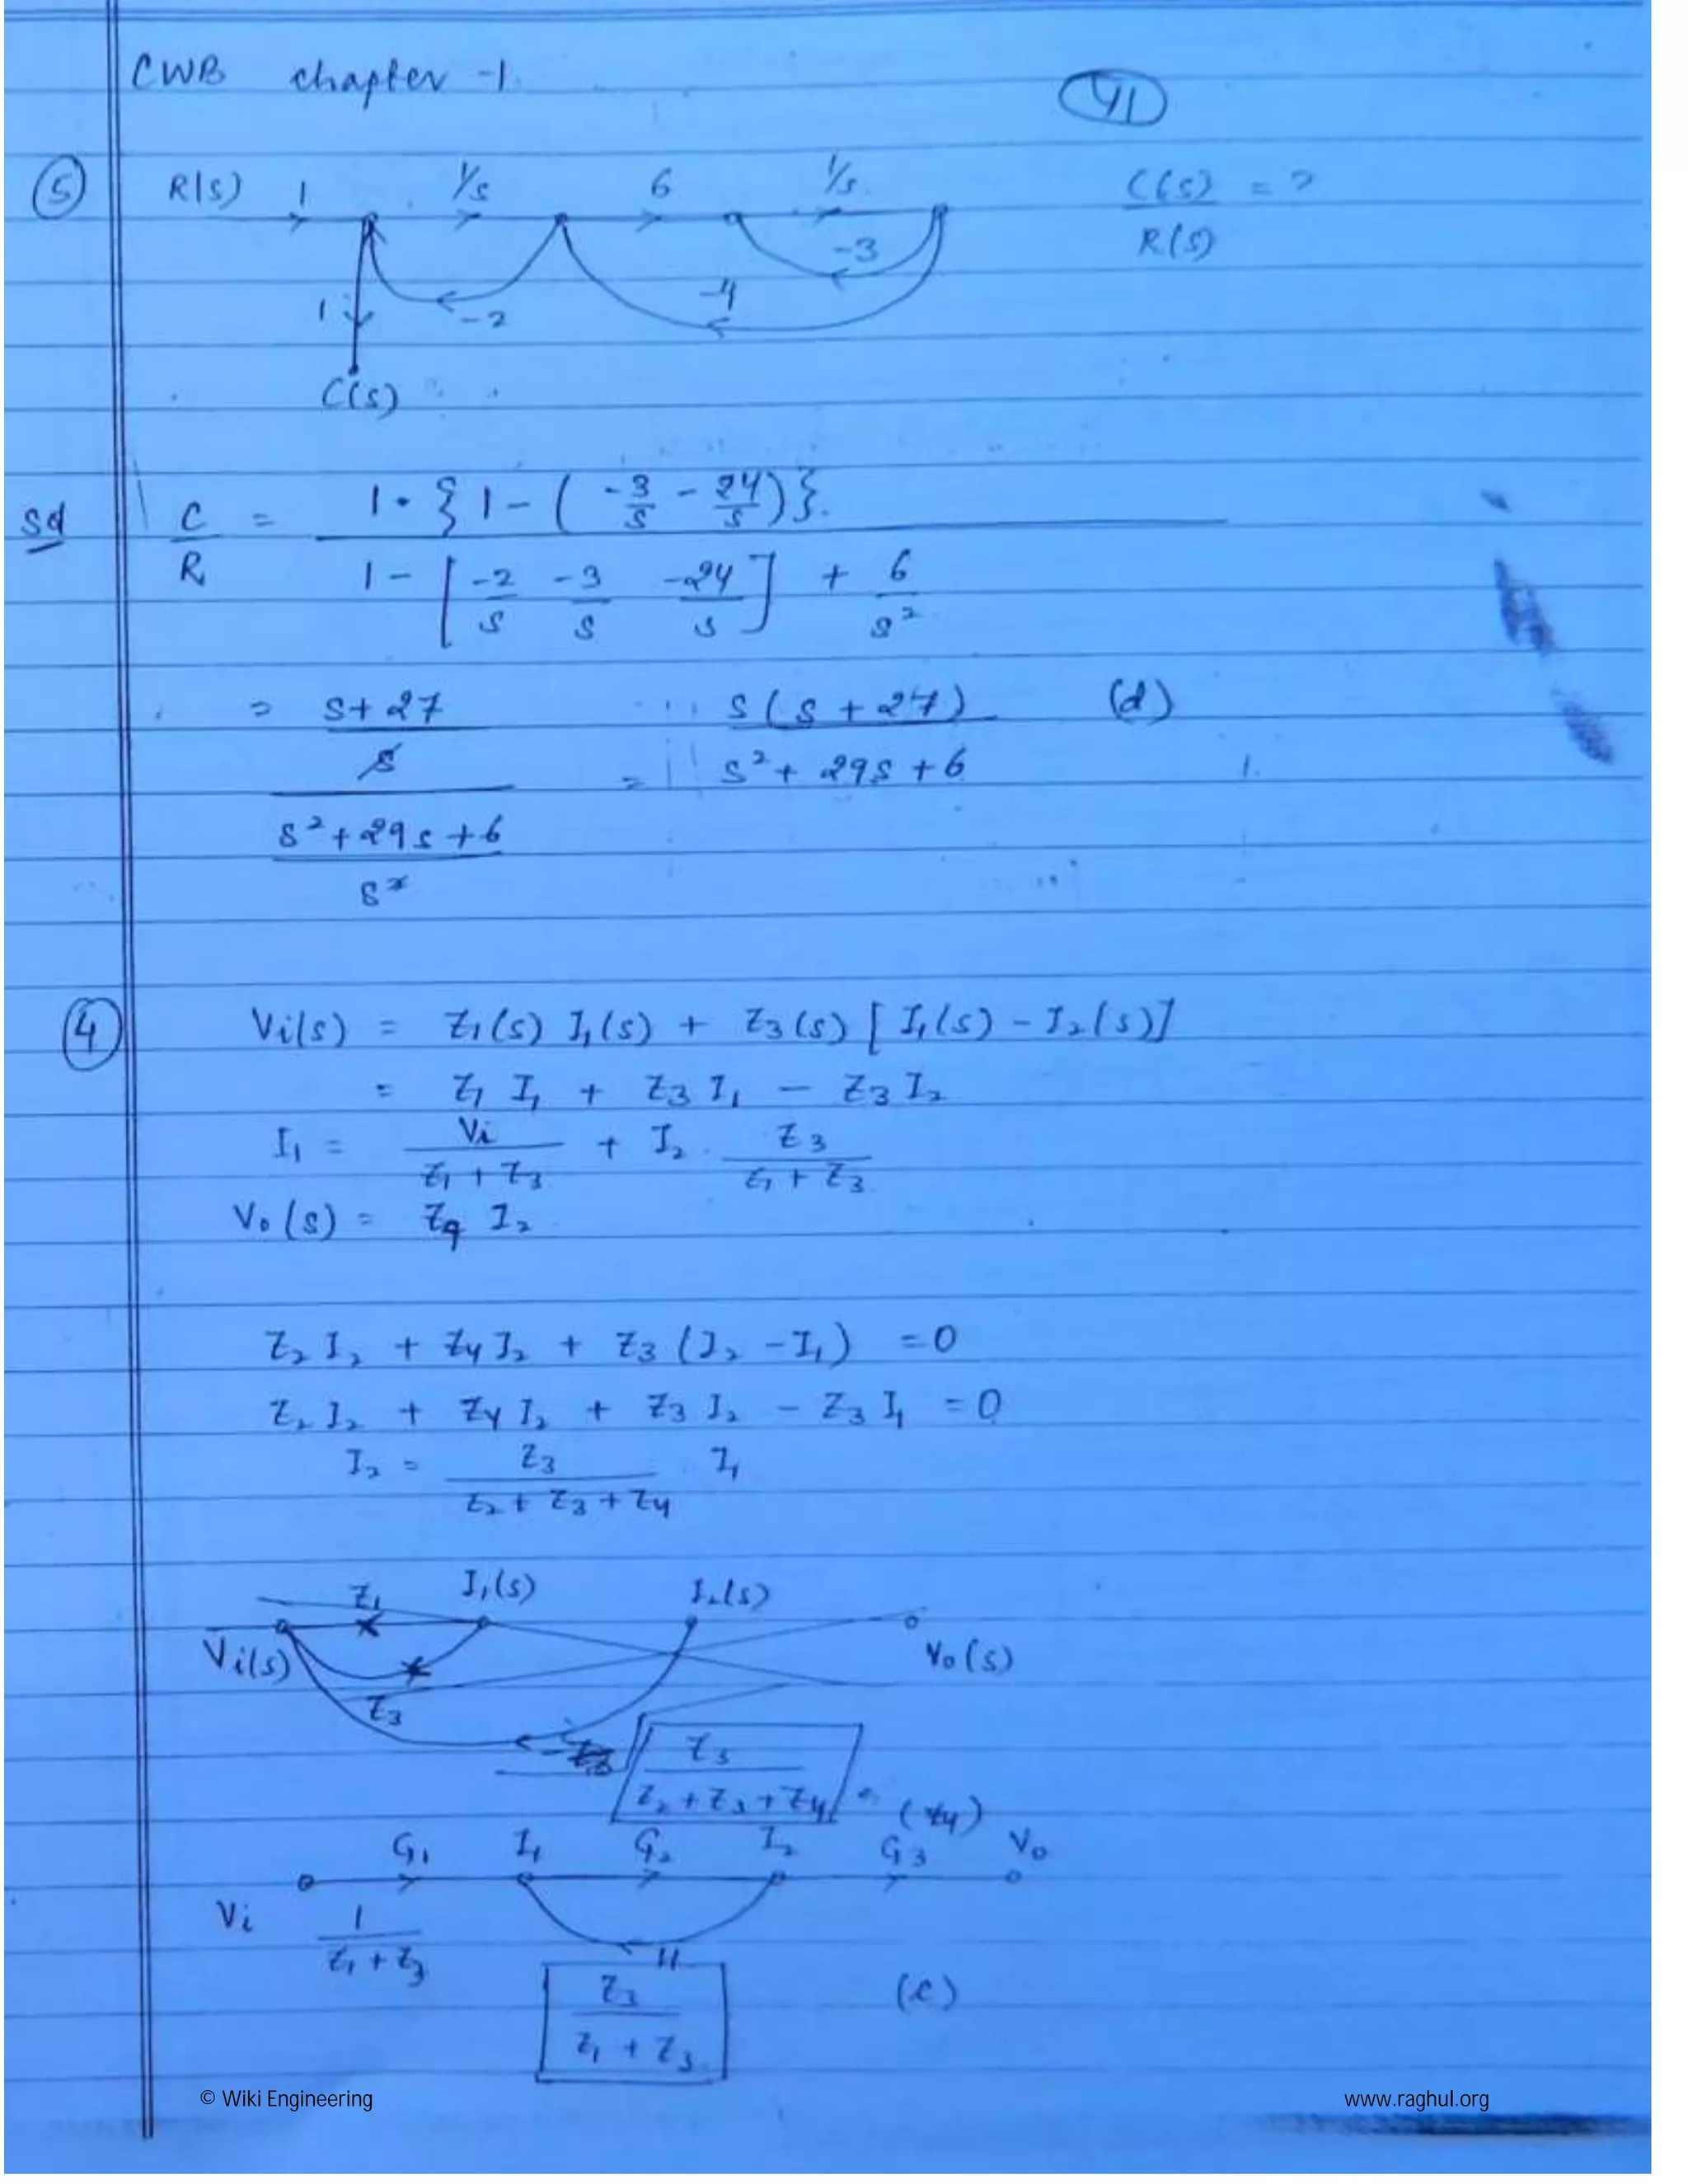 CWB chapter -1.
41
5 R(s) 1 1/s 6 1/s C(s)/R(s) = ?
-3
-4
1 -2
C(s)
Sol C/R = 1·{1-(-3/s - 24/s)}. / 1-[-2/s -3/s -24/s] + 6/s²
= (s+27)/s / (s²+29s+6)/s² = s(s+27) / s²+29s+6 (d)
4 Vi(s) = Z1(s) I1(s) + Z3(s) [I1(s) - I2(s)]
= Z1 I1 + Z3 I1 - Z3 I2
I1 = Vi/(Z1+Z3) + I2 · Z3/(Z1+Z3)
Vo(s) = Z4 I2
Z2 I2 + Z4 I2 + Z3 (I2 - I1) = 0
Z2 I2 + Z4 I2 + Z3 I2 - Z3 I1 = 0
I2 = Z3/(Z2+Z3+Z4) I1
Z1 I1(s) I2(s)
Vi(s) Vo(s)
Z3
Z3/(Z2+Z3+Z4) (Z4)
G1 I1 G2 I2 G3 Vo
Vi 1/(Z1+Z3) H
Z3/(Z1+Z3) (c)
© Wiki Engineering www.raghul.org